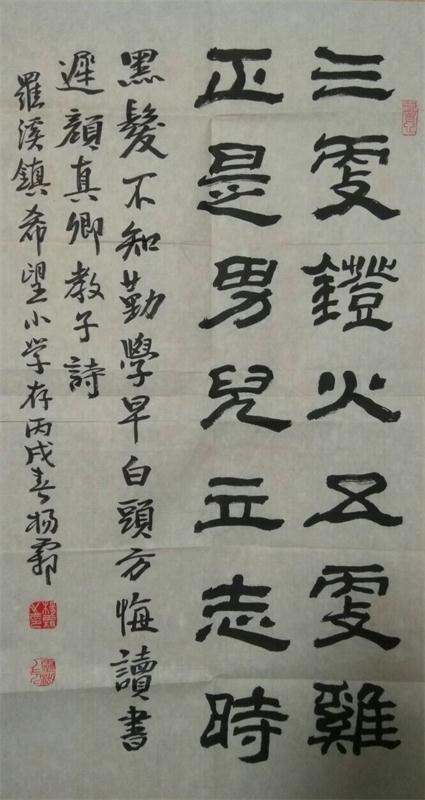 三更鐙火五更雞
正是男兒立志時
黑髮不知勤學早白頭方悔讀書
遲顏真卿教子詩
羅溪鎮希望小学存丙戌春杨